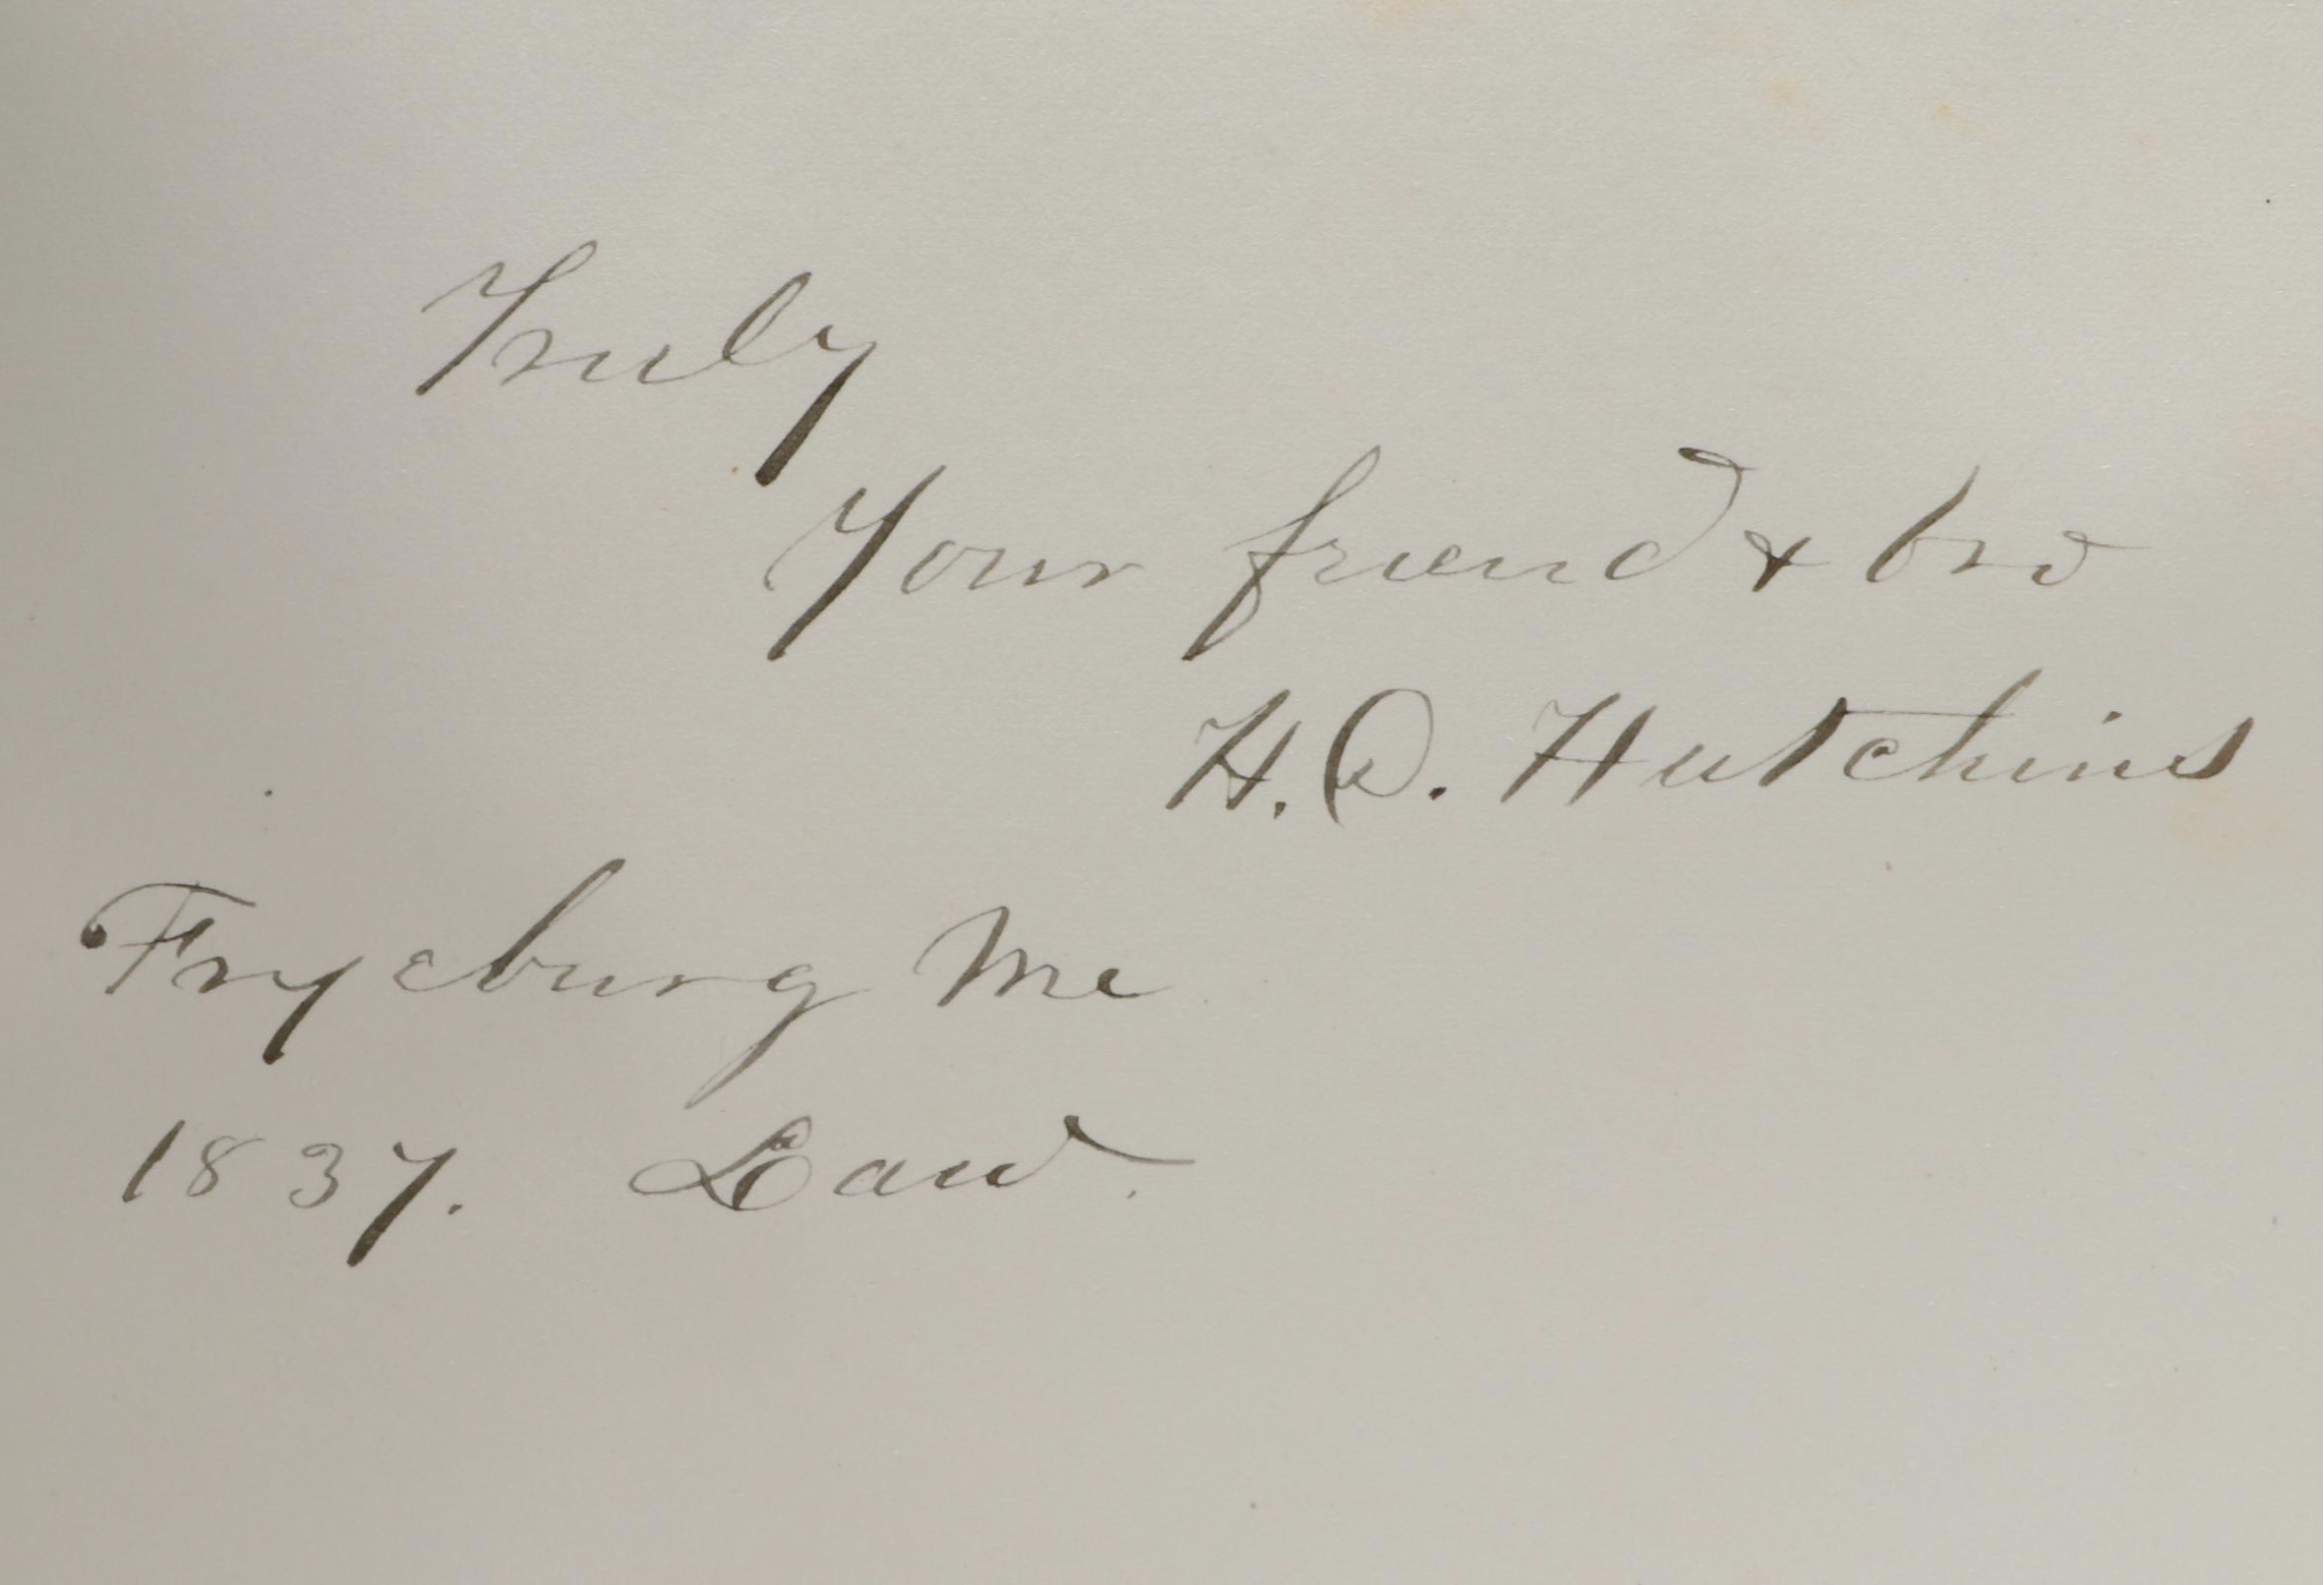 Truly
Your friend & bro
H. D. Hutchins
Fryeburg Me
1837. Law.